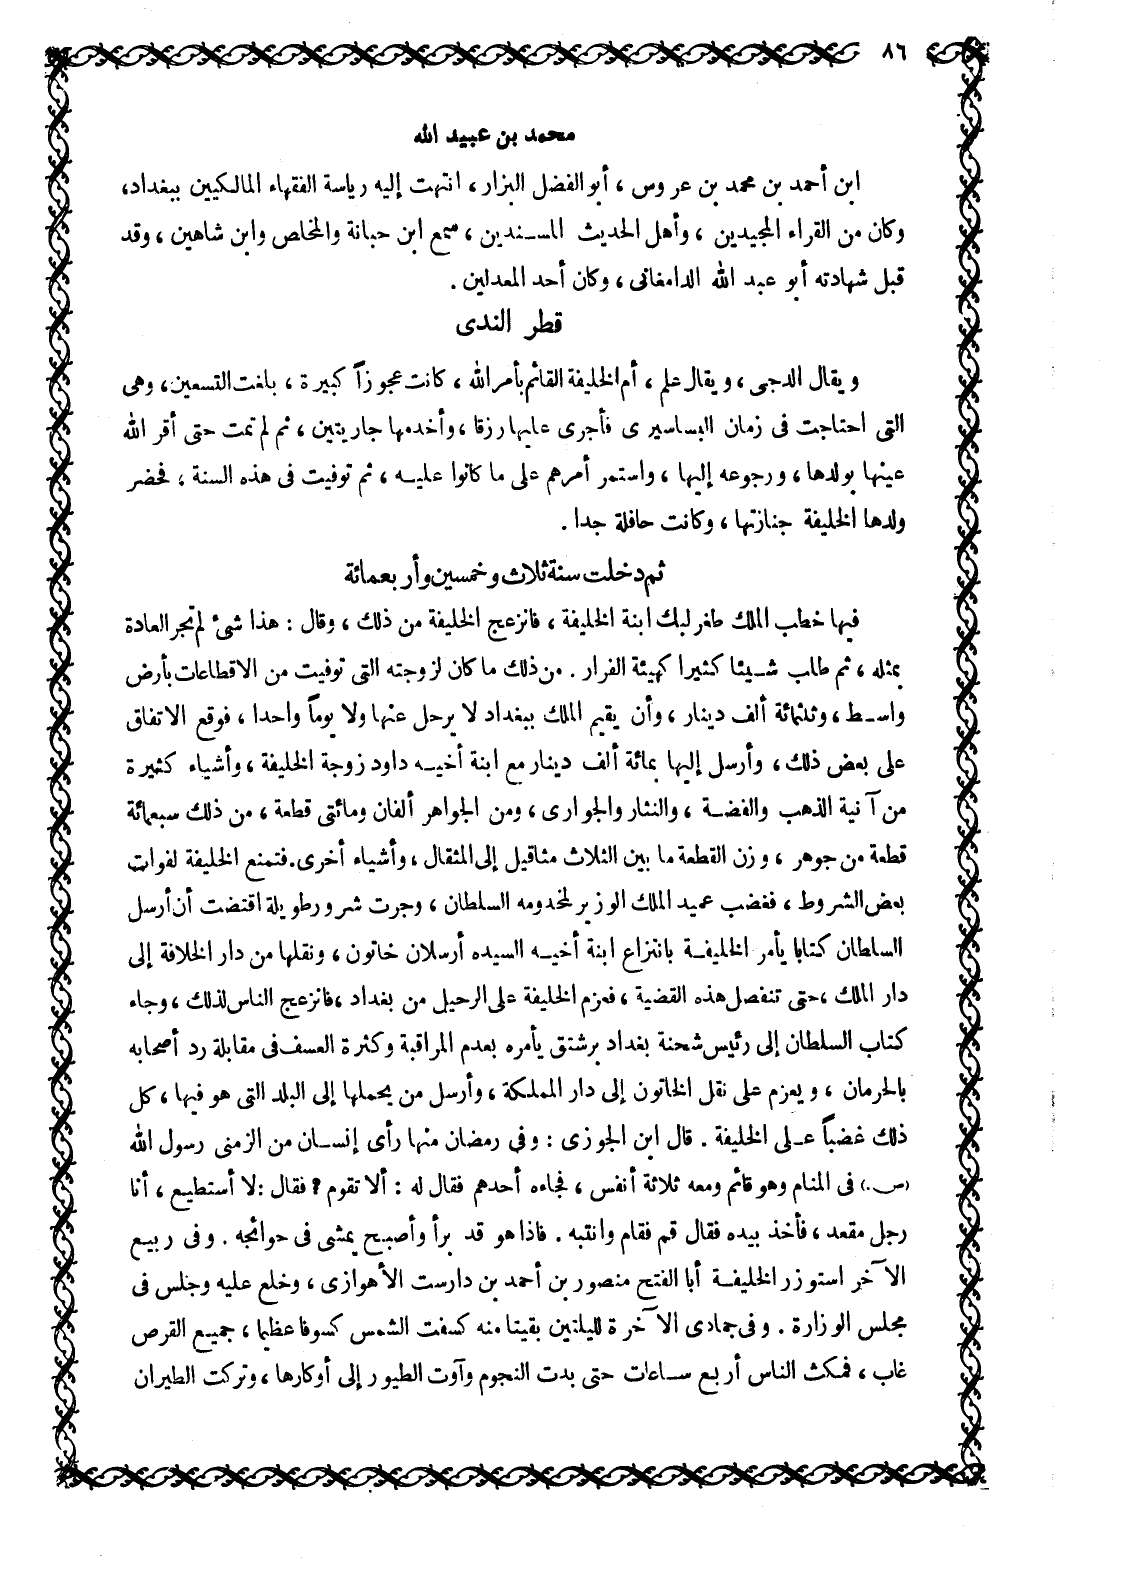 ٨٦
محمد بن عبيد الله
ابن أحمد بن محمد بن عروس ، أبو الفضل البزار ، انتهت إليه رياسة الفقهاء المالكيين ببغداد ،
وكان من القراء المجيدين ، وأهل الحديث المسندين ، سمع ابن حبانة والمخلص وابن شاهين ، وقد
قبل شهادته أبو عبد الله الدامغانى ، وكان أحد المعدلين .
قطر الندى
ويقال الدجى ، ويقال علم ، أم الخليفة القائم بأمر الله ، كانت عجوزاً كبيرة ، بلغت التسعين ، وهى
التى احتاجت فى زمان البساسيرى فأجرى عليها رزقا ، وأخدمها جاريتين ، ثم لم تمت حتى أقر الله
عينها بولدها ، ورجوعه إليها ، واستمر أمرهم على ما كانوا عليه ، ثم توفيت فى هذه السنة ، فحضر
ولدها الخليفة جنازتها ، وكانت حافلة جدا .
ثم دخلت سنة ثلاث وخمسين وأربعمائة
فيها خطب الملك طغرلبك ابنة الخليفة ، فانزعج الخليفة من ذلك ، وقال : هذا شئ لم تجر العادة
بمثله ، ثم طلب شيئا كثيرا كهيئة الفرار . من ذلك ما كان لزوجته التى توفيت من الاقطاعات بأرض
واسط ، وثلثمائة ألف دينار ، وأن يقيم الملك ببغداد لا يرحل عنها ولا يوماً واحدا ، فوقع الاتفاق
على بعض ذلك ، وأرسل إليها بمائة ألف دينار مع ابنة أخيه داود زوجة الخليفة ، وأشياء كثيرة
من آنية الذهب والفضة ، والنثار والجوارى ، ومن الجواهر ألفان ومائتى قطعة ، من ذلك سبعمائة
قطعة من جوهر ، وزن القطعة ما بين الثلاث مثاقيل إلى المثقال ، وأشياء أخرى . فتمنع الخليفة لفوات
بعض الشروط ، فغضب عميد الملك الوزير لمخدومه السلطان ، وجرت شرور طويلة اقتضت أن أرسل
السلطان كتابا يأمر الخليفة بانتزاع ابنة أخيه السيده أرسلان خاتون ، ونقلها من دار الخلافة إلى
دار الملك ، حتى تنفصل هذه القضية ، فعزم الخليفة على الرحيل من بغداد ، فانزعج الناس لذلك ، وجاء
كتاب السلطان إلى رئيس شحنة بغداد برشتق يأمره بعدم المراقبة وكثرة العسف فى مقابلة رد أصحابه
بالحرمان ، ويعزم على نقل الخاتون إلى دار المملكة ، وأرسل من يحملها إلى البلد التى هو فيها ، كل
ذلك غضباً على الخليفة . قال ابن الجوزى : وفى رمضان منها رأى إنسان من الزمنى رسول الله
(ص.) فى المنام وهو قائم ومعه ثلاثة أنفس ، فجاءه أحدهم فقال له : ألا تقوم ؟ فقال : لا أستطيع ، أنا
رجل مقعد ، فأخذ بيده فقال قم فقام وانتبه . فاذا هو قد برأ وأصبح يمشى فى حوائجه . وفى ربيع
الآخر استوزر الخليفة أبا الفتح منصور بن أحمد بن دارست الأهوازى ، وخلع عليه وجلس فى
مجلس الوزارة . وفى جمادى الآخرة لليلتين بقيتا منه كسفت الشمس كسوفا عظيما ، جميع القرص
غاب ، فمكث الناس أربع ساعات حتى بدت النجوم وآوت الطيور إلى أوكارها ، وتركت الطيران